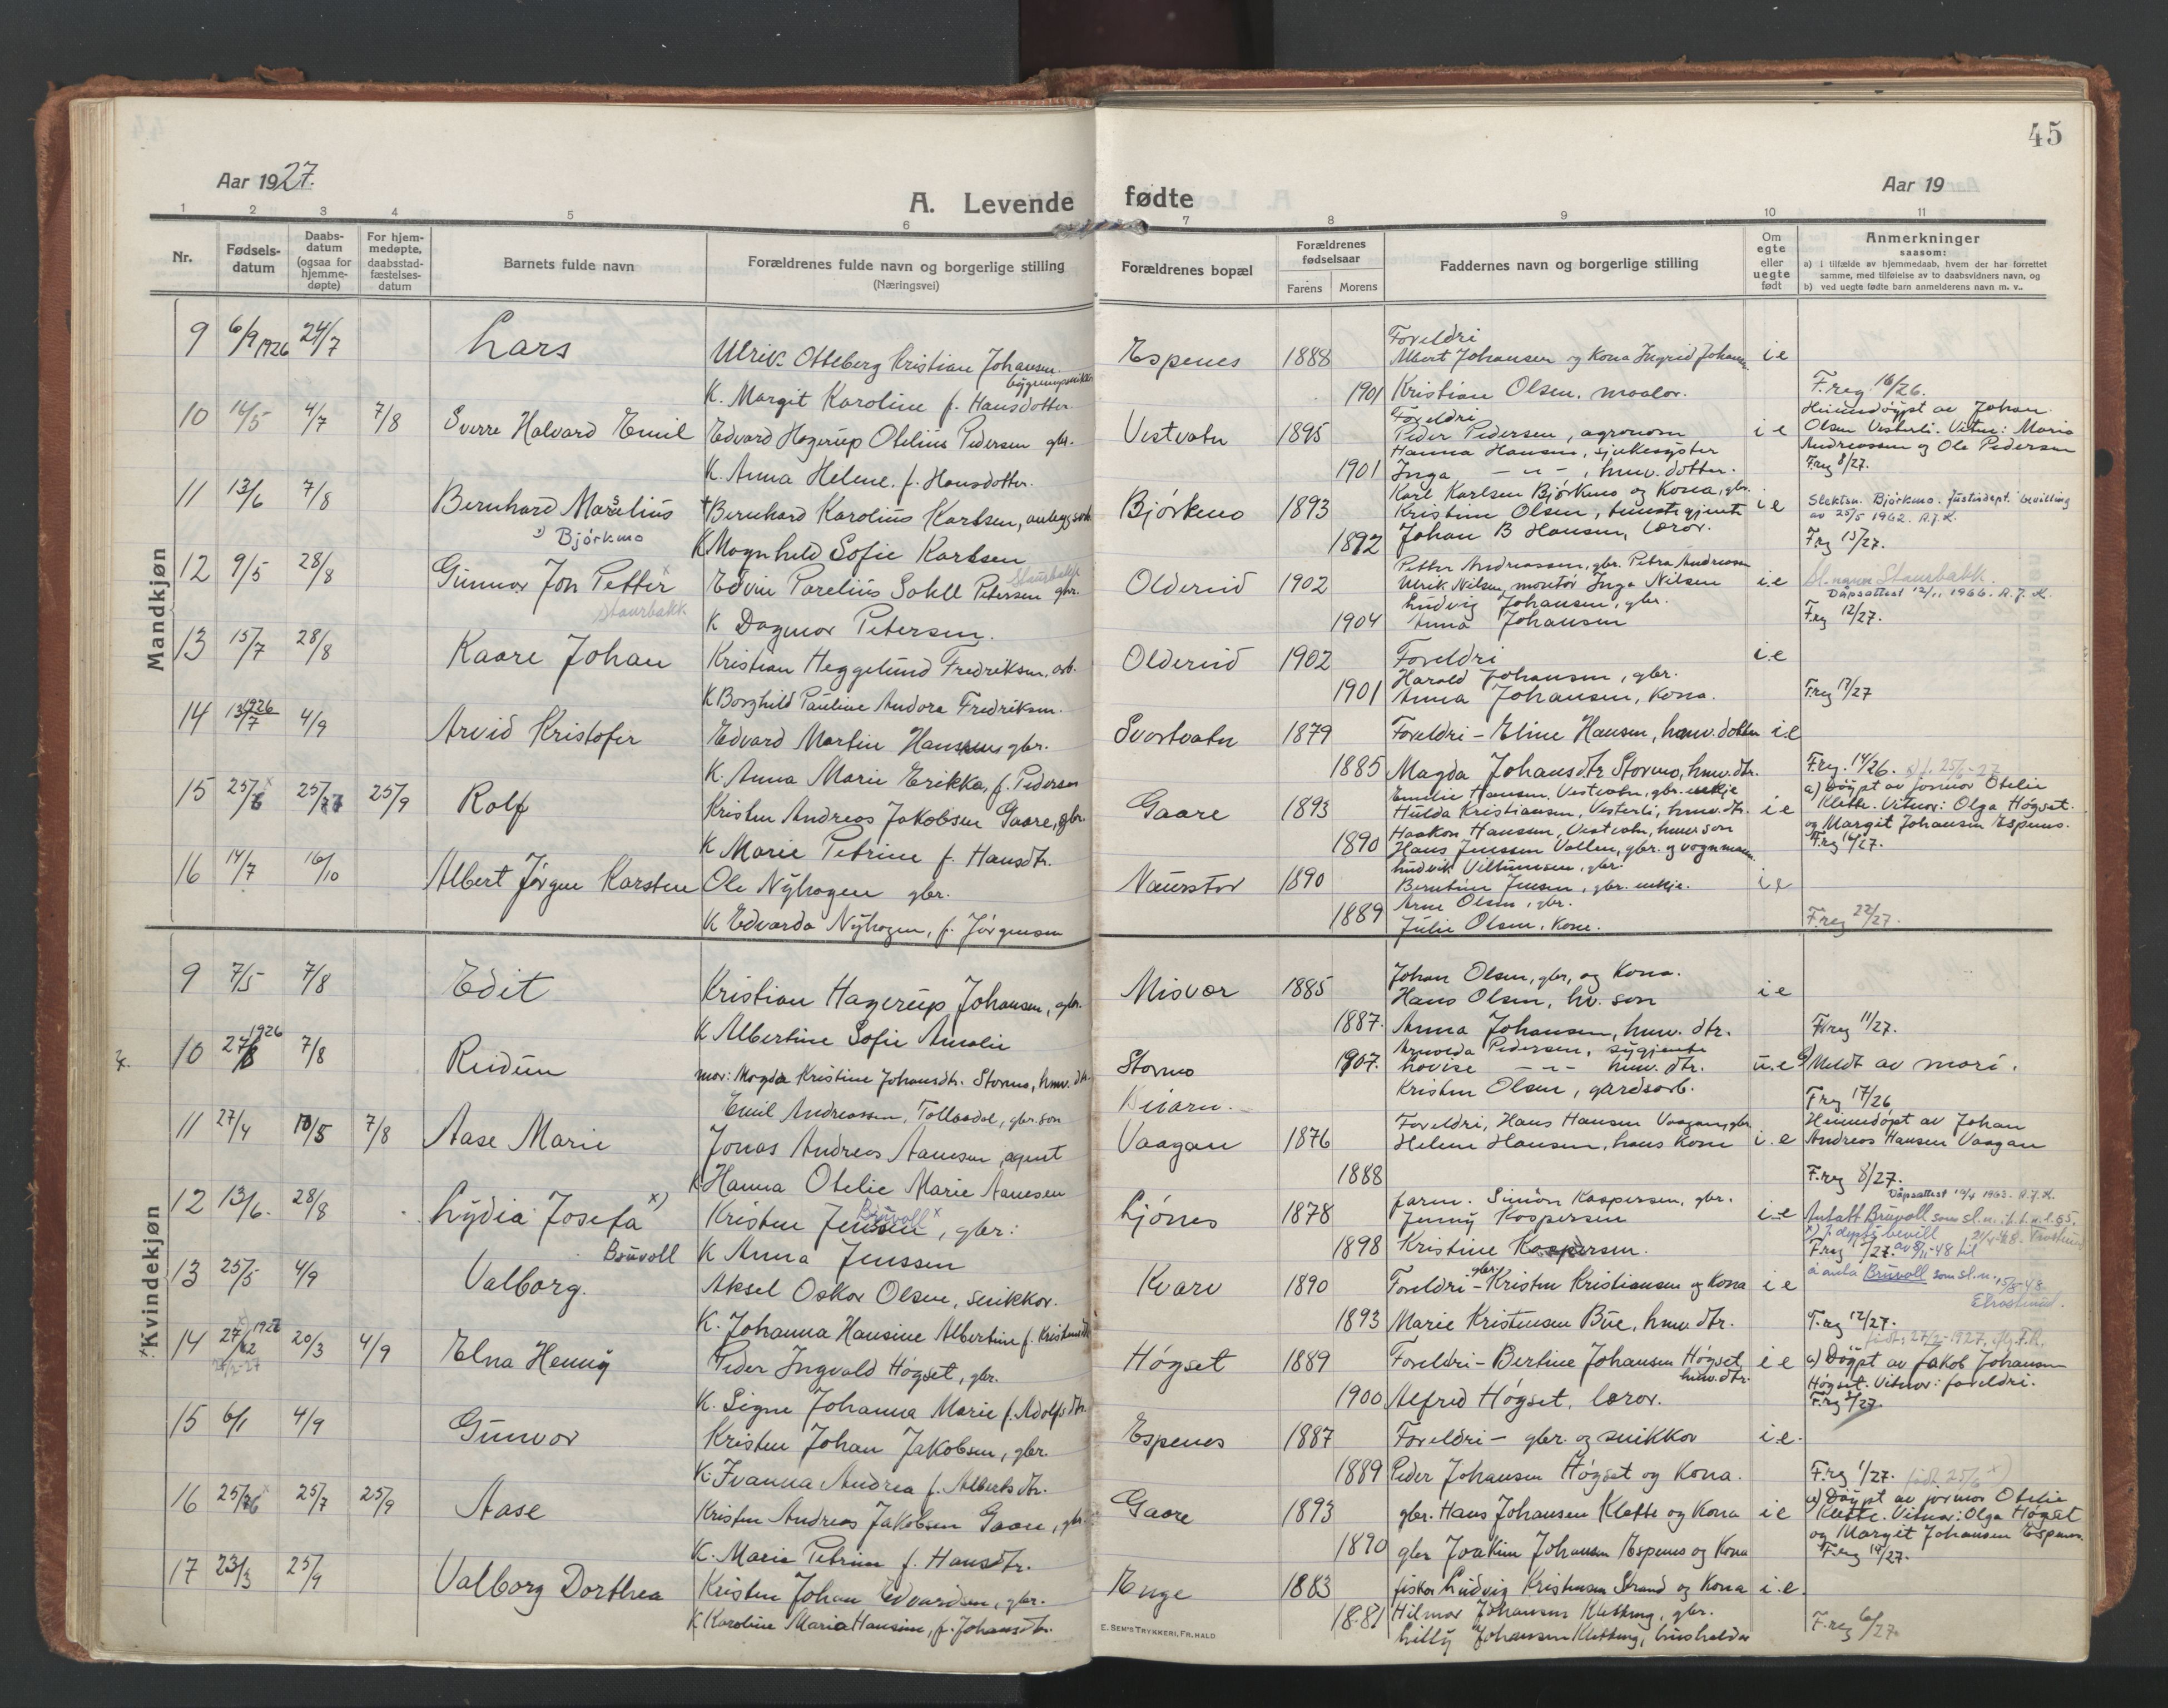 45
Aar 1927.
A. Levende fødte
Aar 19
1 2 3 4 5 6 7 8 9 10 11
Nr.
Fødsels-datum
Daabs-datum (ogsaa for hjemme-døpte)
For hjem-medøpte, daabsstad-fæstelses-datum
Barnets fulde navn
Forældrenes fulde navn og borgerlige stilling (Næringsvei)
Forældrenes bopæl
Forældrenes fødselsaar
Farens Morens
Faddernes navn og borgerlige stilling
Om egte eller uegte født
Anmerkninger
saasom:
a) i tilfælde av hjemmedaab, hvem der har forrettet samme, med tilføielse av to daabsvidners navn, og
b) ved uegte fødte barn anmelderens navn m. v..
Mandkjøn
9 6/9 1926 24/7 Lars
Ulrik Otteberg Kristian Johansen
K. Margit Karoline f. Hansdotter.
Espenes 1888 1901
Foreldri
Albert Johansen og Kona Ingrid
Kristian Olsen, maalar.
i e
F.reg 16/26.
10 16/5 4/7 7/8 Sverre Halvard Emil
Edvard Hagerup Otelius Pedersen gbr.
K. Anna Helene. f. Hansdotter.
Vestvatn 1895 1901
Foreldri
Peder Pedersen, agronom
Hanna Hansen, sjukesyster
Inga — " — , hmv. dotter.
i e
Heimdøypt av Johan
Olsen Vesterli. Vitne: Maria
Andreassen og Ole Pedersen
F.reg 8/27.
11 13/6 7/8 Bernhard Marelius
Bjørkmo
Bernhard Karolius Karlsen,
K Magnhild Sofie Karlsen
Bjørkmo 1893 1892
Karl Karlsen Bjørkmo og Kona, gbr.
Kristine Olsen,
Johan B Hansen, lærar.
i e
Slektsn. Bjørkmo. Justisdept. bevilling
av 25/5 1962. A.J.K.
F.reg 13/27.
12 9/5 28/8 Gunnar Jon Petter
Staurbakk
Edvin Parelius Petersen gbr.
Staurbakk
K Dagmar Petersen.
Oldereid 1902 1904
Petter Andreassen, gbr. Petra Andreassen
Ulrik Nilsen, montør Inga Nilsen
Ludvig Johansen, gbr.
Anna Johansen
i e
Sl.navn Staurbakk.
Dåpsattest 12/11 1966. A.J.K.
F.reg 12/27.
13 15/7 28/8 Kaare Johan
Kristian Heggelund Fredriksen, arb.
K Borghild Pauline Andora Fredriksen.
Oldereid 1902 1901
Foreldri
Harald Johansen, gbr.
Anna Johansen, Kona.
i.e
F.reg 17/27
14 13/7 1926 4/9 Arvid Kristofer
Edvard Martin Hansen gbr.
K. Anna Marie Erikka, f. Pedersen
Svartvatn 1879 1885
Foreldri - Eline Hansen, hmv. dotter
Magda Johansdtr Stormo, hmv. dtr.
i.e
F.reg. 14/26.
15 25/6 25/7 25/9 Rolf
Kristen Andreas Jakobsen Gaare, gbr.
K Marie Petrine f. Hansdtr.
Gaare 1893 1890
Emilie Hansen, Vestvatn, gbr. enkje
Hulda Kristiansen, Vesterli, hmv. dtr.
Haakon Hansen, Vestvatn,
Hans Jensen Vollen, gbr. og vognmann.
i e
a) Døypt av jormor Otelie
Klette. Vitnar: Olga Høgset.
og Margit Johansen Espenes.
F.reg 16/27.
16 14/7 16/10 Albert Jørgen Karsten
Ole Nyhagen gbr.
K Edvarda Nyhagen, f. Jørgensen
Naurstor 1890 1889
Ludvik Villumsen, gbr.
Berntine Jensen, gbr. enkje.
Arne Olsen, gbr.
Julie Olsen, Kone.
i e
F.reg 22/27.
Kvindekjøn
9 7/5 7/8 Edit
Kristian Hagerup Johansen, gbr.
K Albertine Sofie Amalie
Misvær 1885 1887.
Johan Olsen, gbr, og Kona.
Hans Olsen, hv. son
Anna Johansen, hmv. dtr.
i e
F.reg 11/27.
10 27/8 1926 7/8 Reidun
mor: Magda Kristine Johansdtr. Stormo, hmv. dtr.
Emil Andreassen, Tollaadal, gbr. son
Stormo 1907.
Beiarn.
Arnolda Pedersen, sygjente
Lovise — " — hmv. dtr.
Kristen Olsen, gardsarb.
u.e
Meldt av mori.
F.reg 17/26
11 27/4 10/5 7/8 Aase Marie
Jonas Andreas Aamesen, agent
K Hanna Otelie Marie Aamesen
Vaagan 1876 1888
Foreldri, Hans Hansen Vaagan, gbr
Helene Hansen, hans Kone
i. e
Heimdøpt av Johan
Andreas Hansen Vaagan
F.reg 8/27.
12 13/6. 28/8 Lydia Josefa x)
Bruvoll
Kristen Jensen, gbr.
Bruvoll x
K Anna Jenssen
Ljønes 1878 1898
farm. Simon Kaspersen, gbr.
Jenny Kaspersen
Kristine Kaspersen.
i e
Dåpsattest 10/4 1963. A.J.K.
Antatt Bruvoll som sl.n.
F.reg 9/27.
å anta Bruvoll som sl.n.
13 25/5 4/9 Valborg.
Aksel Oskar Olsen, snikkar.
K. Johanna Hansine Albertine f. Kristensdtr
Kvarv 1890 1893
Foreldri - gbr Kristen Kristiansen og Kona
Marie Kristensen Bue, hmv. dtr.
i e
F.reg 12/27.
14 27/12 1926 20/3 4/9 Elna Henny
Peder Ingvald Høgset, gbr.
K. Signe Johanna Marie f. Adolfsdtr.
Høgset 1889 1900
Foreldri - Bertine Johansen Høgset hmv. dtr.
Alfred Høgset, lærar.
i e
født 27/2-1927,
a) Døypt av Jakob Johansen
Høgset. Vitnar: foreldri.
F.reg 5/27.
15 6/1 4/9 Gunvor
Kristen Johan Jakobsen, gbr.
K. Ivanna Andrea f. Albertsdtr.
Espenes 1887 1889
Foreldri - gbr. og snikkar
Peder Johansen Høgset og Kona.
i.e.
F.reg 1/27.
16 25/6 25/7 25/9 Aase
Kristen Andreas Jakobsen Gaare, gbr
K. Marie Petrine f. Hansdtr.
Gaare 1893 1890
gbr. Hans Johansen Klette og Kona
gbr Joakim Johansen Espenes og Kona
i e
født 25/6 x)
a) Døypt av jormor Otelie
Klette. Vitnar: Olga Høgset
og Margit Johansen Espenes.
F.reg 14/27.
17 23/3 25/9 Valborg Dorthea
Kristen Johan Edvardsen, gbr.
K Karoline Maria Hansine, f. Johansdtr.
Enge 1883 1881
fiskar Ludvig Kristensen Strand og Kona
Hilmar Johansen Kletteng, gbr.
Lilly Johansen Kletteng, husholdar
i.e.
F.reg 6/27.
E. SEM'S TRYKKERI, FR.HALD